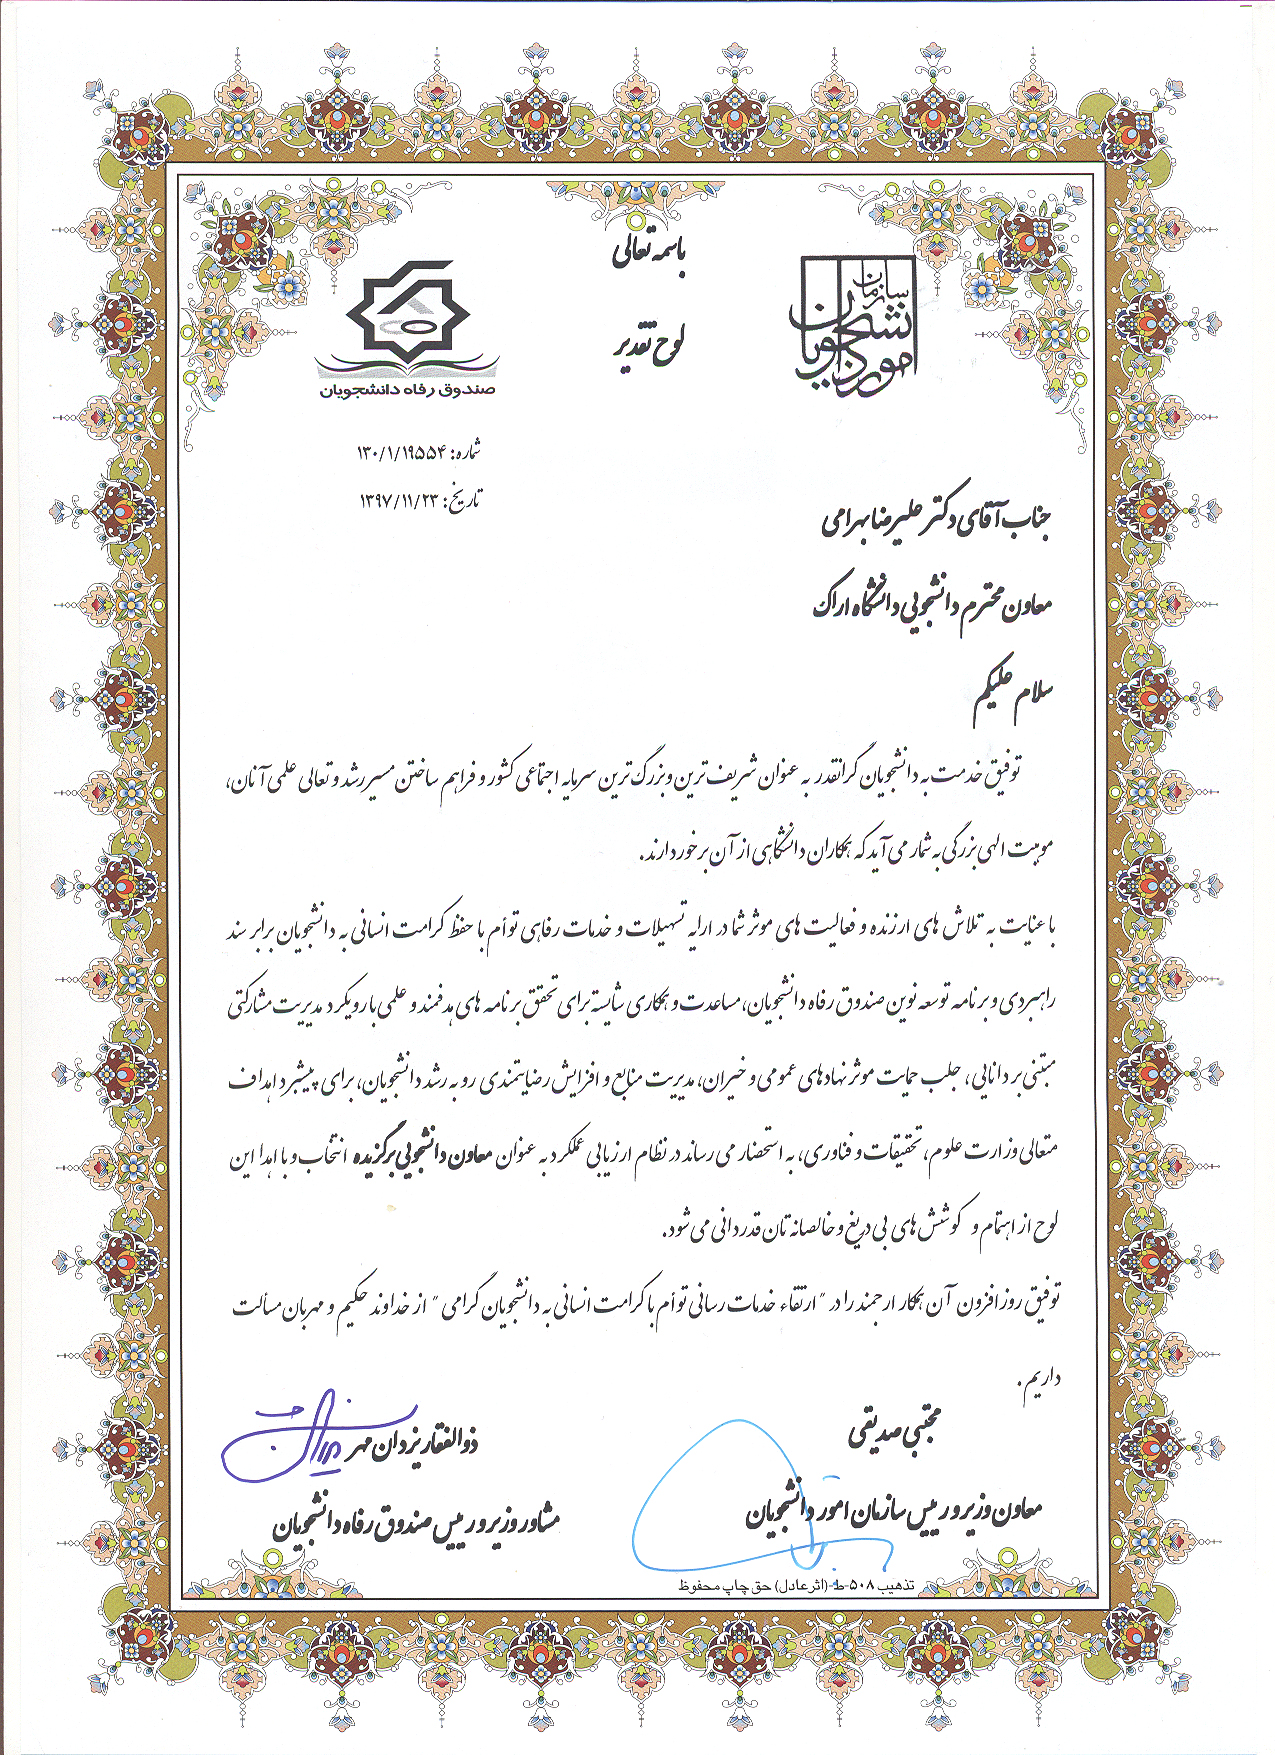 باسمه تعالی
سازمان امور دانشجویان
لوح تقدیر
صندوق رفاه دانشجویان
شماره: ۱۳۰/۱/۱۹۵۵۴
تاریخ: ۱۳۹۷/۱۱/۲۳
جناب آقای دکتر علیرضا بهرامی
معاون محترم دانشجویی دانشگاه اراک
سلام علیکم
توفیق خدمت به دانشجویان گرانقدر به عنوان شریف ترین و بزرگ ترین سرمایه اجتماعی کشور و فراهم ساختن مسیر رشد و تعالی علمی آنان،
موهبت الهی بزرگی به شمار می آید که همکاران دانشگاهی از آن برخوردارند.
با عنایت به تلاش های ارزنده و فعالیت های موثر شما در ارایه تسهیلات و خدمات رفاهی توأم با حفظ کرامت انسانی به دانشجویان برابر سند
راهبردی و برنامه توسعه نوین صندوق رفاه دانشجویان، مساعدت و همکاری شایسته برای تحقق برنامه های هدفمند و علمی با رویکرد مدیریت مشارکتی
مبتنی بر دانایی، جلب حمایت موثر نهادهای عمومی و خیران، مدیریت منابع و افزایش رضایتمندی رو به رشد دانشجویان، برای پیشبرد اهداف
متعالی وزارت علوم، تحقیقات و فناوری، به استحضار می رساند در نظام ارزیابی عملکرد به عنوان معاون دانشجویی برگزیده انتخاب و با اهدا این
لوح از اهتمام و کوشش های بی دریغ و خالصانه تان قدردانی می شود.
توفیق روز افزون آن همکار ارجمند را در "ارتقاء خدمات رسانی توأم با کرامت انسانی به دانشجویان گرامی" از خداوند حکیم و مهربان مسالت
داریم.
مجتبی صدیقی
معاون وزیر و رییس سازمان امور دانشجویان
ذوالفقار یزدان مهر
مشاور وزیر و رییس صندوق رفاه دانشجویان
تذهیب ۵۰۸-ط-(اثر عادل) حق چاپ محفوظ